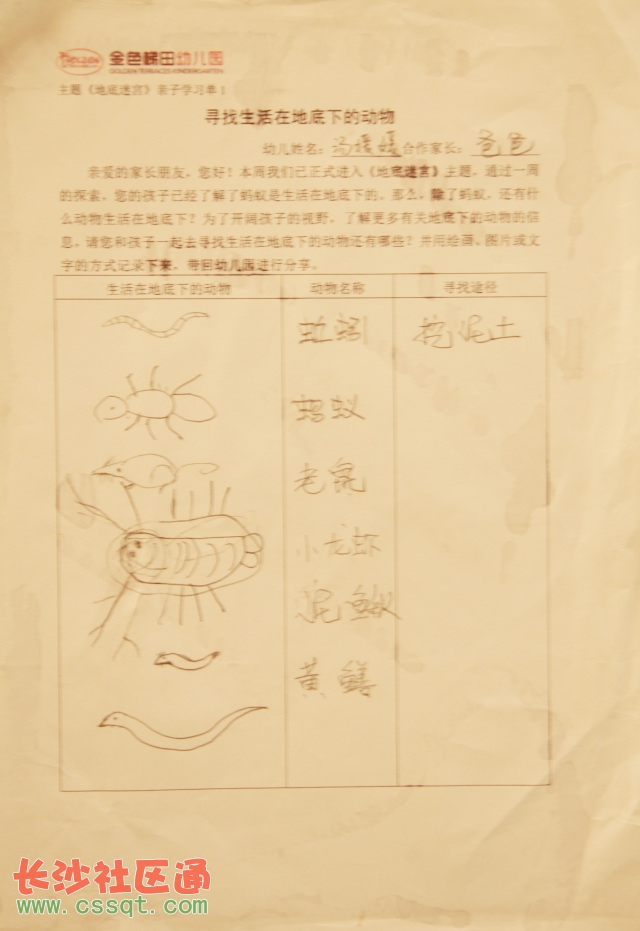 金色梯田幼儿园
GOLDEN TERRACES KINDERGARTEN
主题《地底迷宫》亲子学习单1
寻找生活在地底下的动物
幼儿姓名： 合作家长：爸爸
亲爱的家长朋友，您好！本周我们已正式进入《地底迷宫》主题，通过一周
的探索，您的孩子已经了解了蚂蚁是生活在地底下的。那么，除了蚂蚁，还有什
么动物生活在地底下？为了开阔孩子的视野，了解更多有关地底下的动物的信
息，请您和孩子一起去寻找生活在地底下的动物还有哪些？并用绘画、图片或文
字的方式记录下来，带回幼儿园进行分享。
生活在地底下的动物 动物名称 寻找途径
蚯蚓 挖泥土
蚂蚁
老鼠
小龙虾
泥鳅
黄鳝
长沙社区通
www.cssqt.com